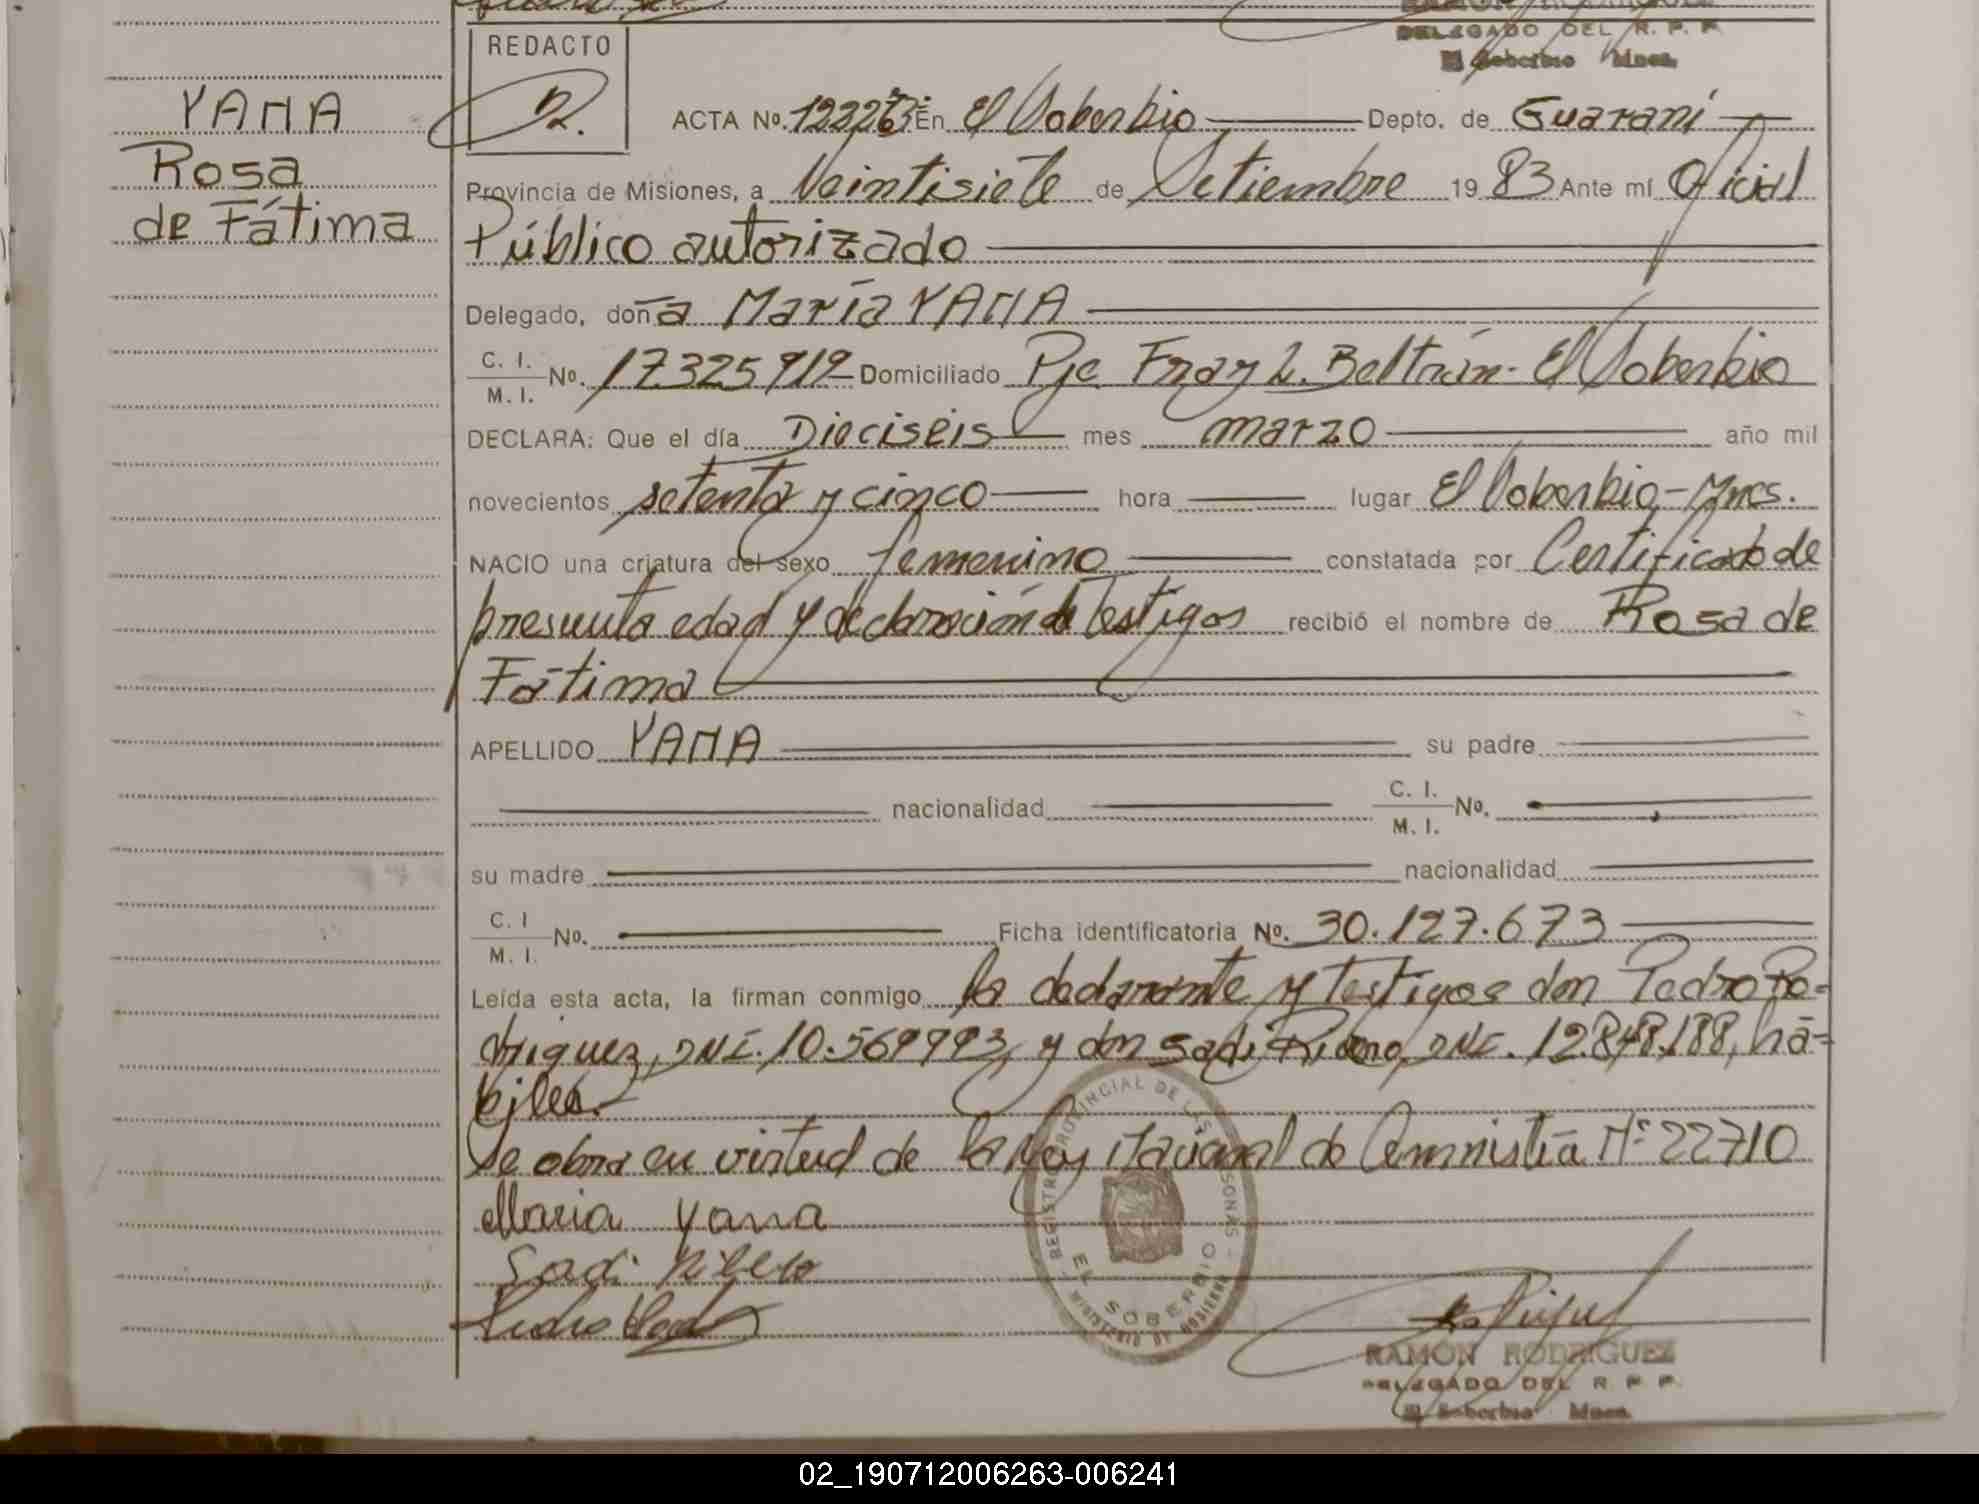 RAMON RODRIGUEZ
DELEGADO DEL R. P. P.
El Soberbio Mnes.
REDACTO
YANA
Rosa
de Fátima
ACTA Nº. En El Soberbio Depto. de Guaraní
Provincia de Misiones, a Veintisiete de Setiembre 19 83 Ante mí Oficial
Público autorizado
Delegado, doña María YANA
C. I. / M. I. No. 17.325919 Domiciliado Pje Fray L. Beltrán - El Soberbio
DECLARA: Que el día Dieciseis mes marzo año mil
novecientos setenta y cinco hora lugar El Soberbio - Mnes.
NACIO una criatura del sexo femenino constatada por Certificado de
presunta edad y declaración de testigos recibió el nombre de Rosa de
Fátima
APELLIDO YANA su padre
nacionalidad C. I. / M. I. No.
su madre nacionalidad
C. I / M. I. No. Ficha identificatoria Nº. 30.127.673
Leída esta acta, la firman conmigo la declarante y testigos don Pedro Ro=
driguez, DNI. 10.569993, y don Sadi DNI. 12.848.188, há=
biles.-
Se obra en virtud de la Ley Nacional de Amnistía Nº 22710
Maria Yana
Sadi
Pedro
REGISTRO PROVINCIAL DE LAS PERSONAS
EL SOBERBIO
MINISTERIO DE GOBIERNO
RAMON RODRIGUEZ
DELEGADO DEL R. P. P.
El Soberbio Mnes.
02_190712006263-006241